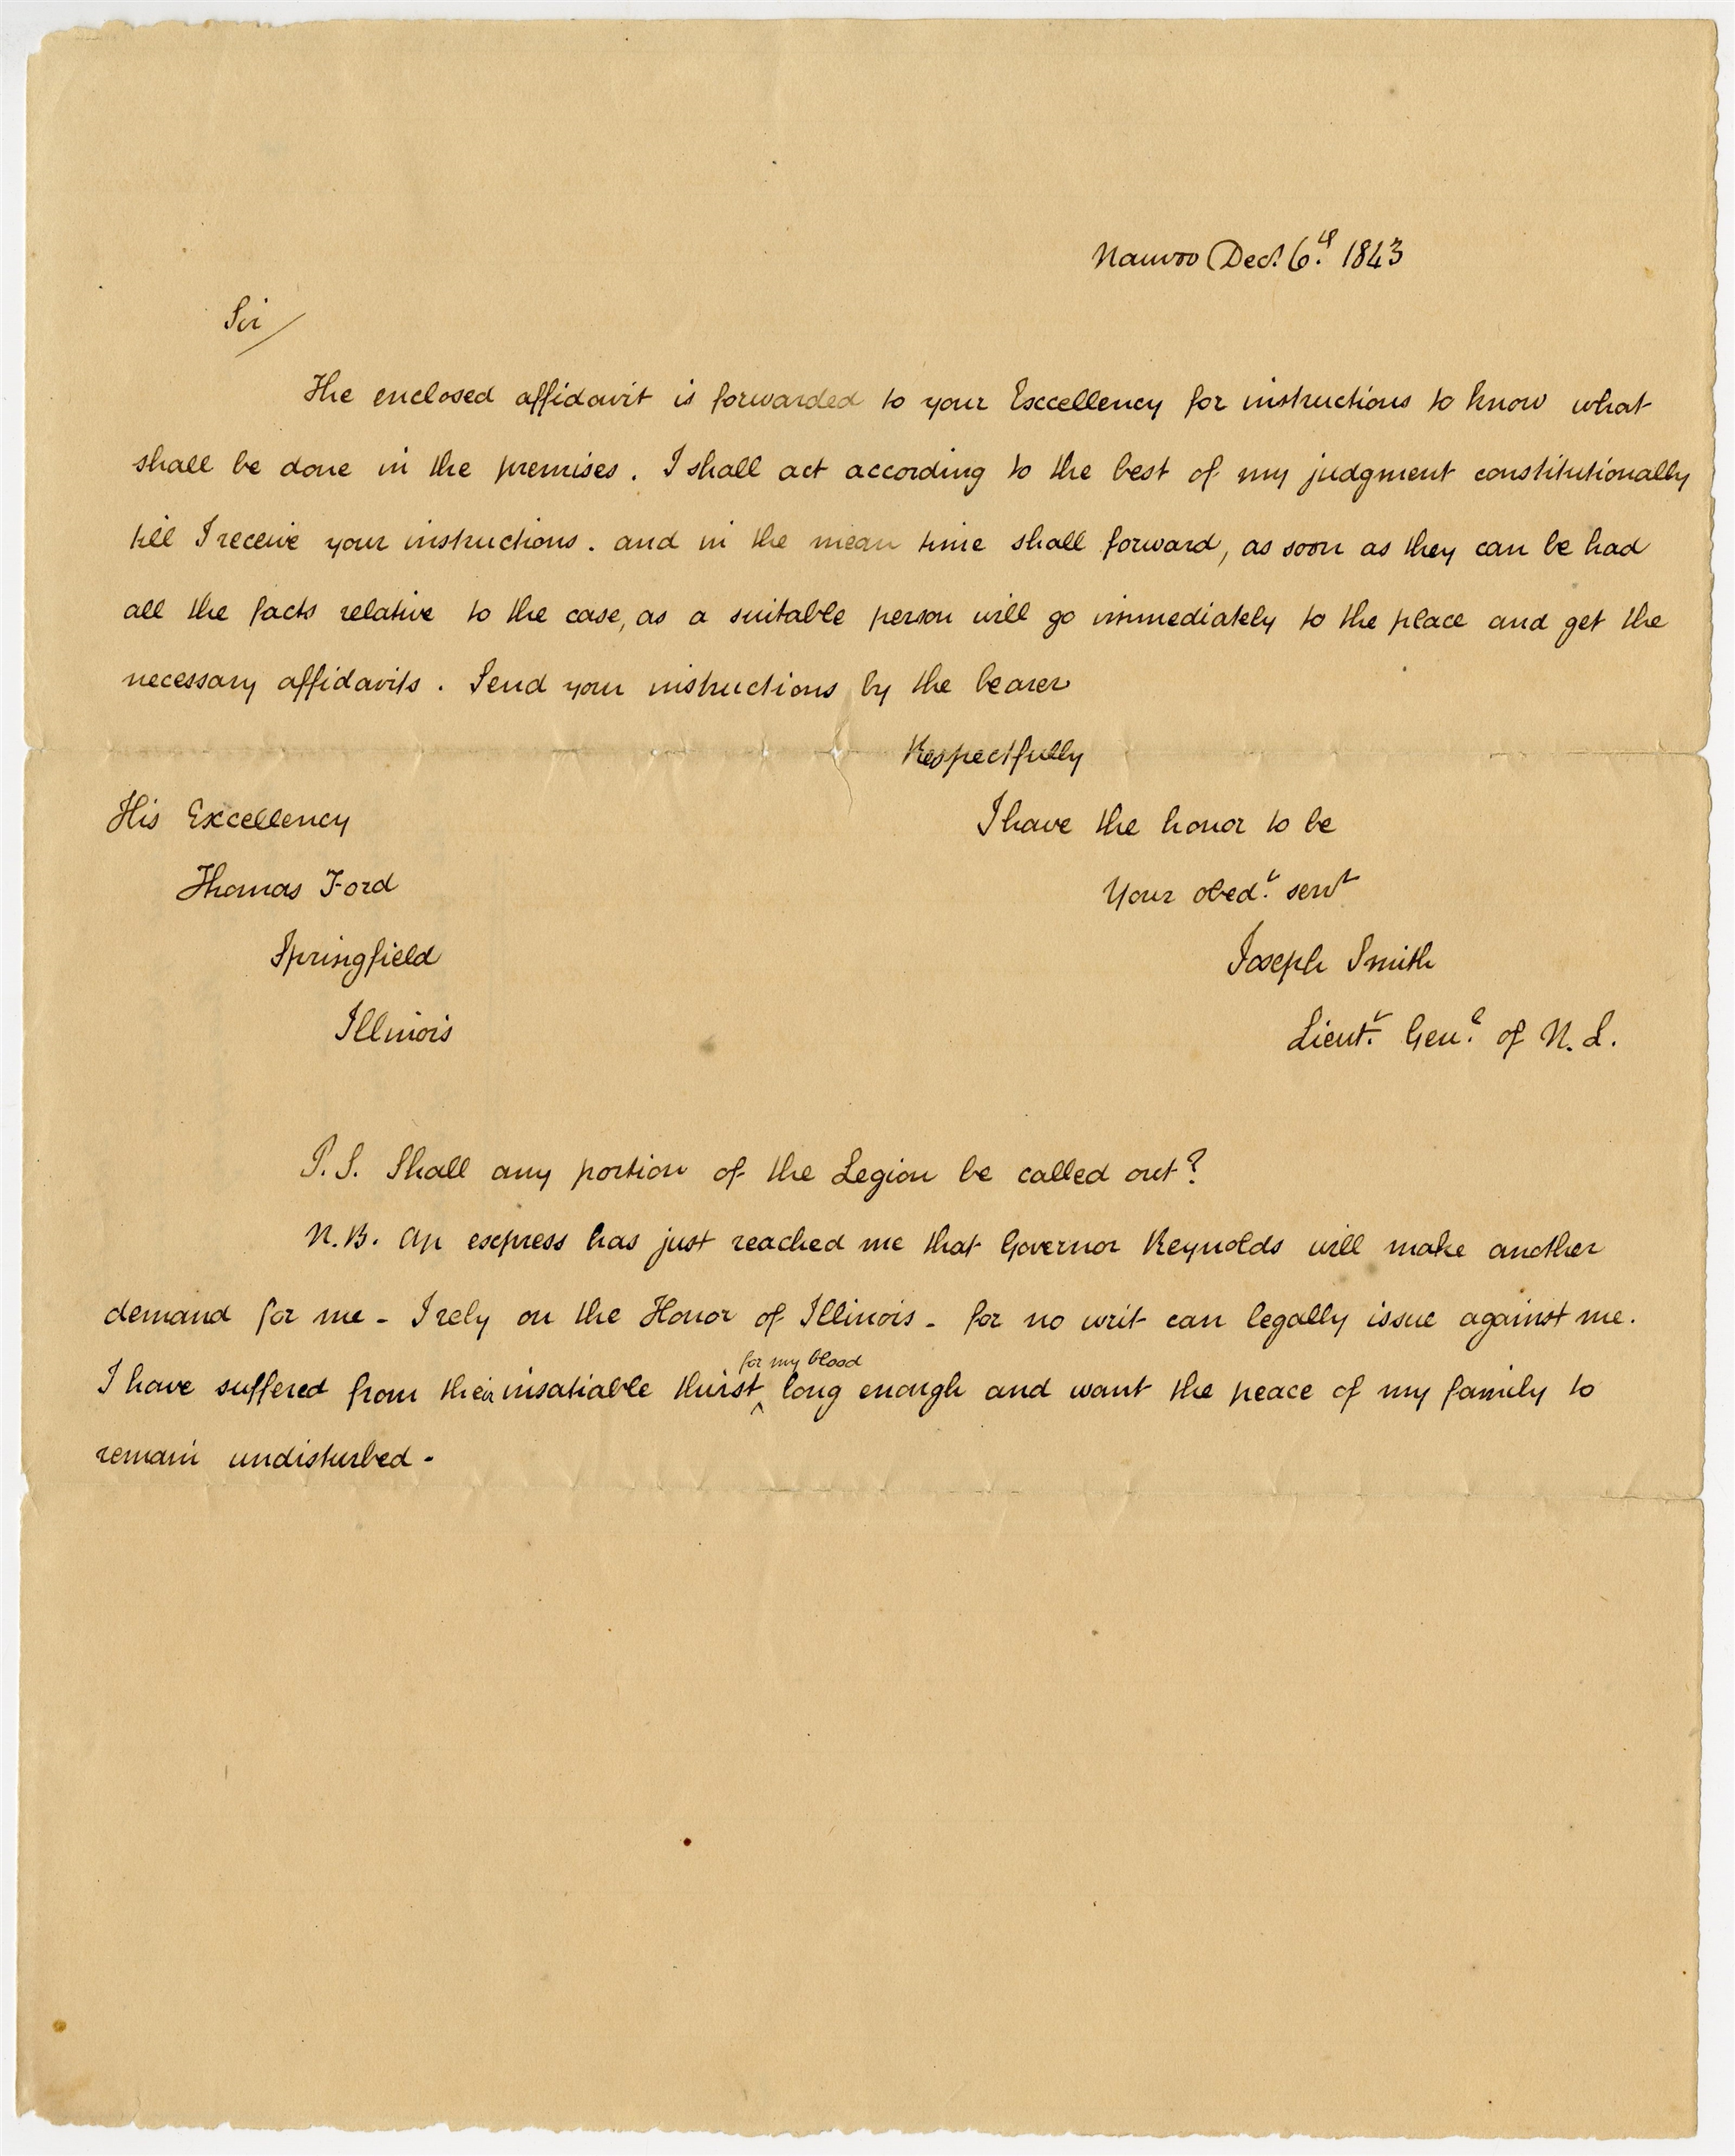 Nauvoo Decr. 6th. 1843
Sir/
The enclosed affidavit is forwarded to your Excellency for instructions to know what
shall be done in the premises. I shall act according to the best of my judgment constitutionally
till I receive your instructions. and in the mean time shall forward, as soon as they can be had
all the facts relative to the case, as a suitable person will go immediately to the place and get the
necessary affidavits. Send your instructions by the bearer
Respectfully
His Excellency
I have the honor to be
Thomas Ford
Your obedt. servt
Springfield
Joseph Smith
Illinois
Lieutt. Genl. of N. L.
P.S. Shall any portion of the Legion be called out?
N.B. An express has just reached me that Governor Reynolds will make another
demand for me - I rely on the Honor of Illinois - for no writ can legally issue against me.
for my blood
I have suffered from their insatiable thirst ^ long enough and want the peace of my family to
remain undisturbed -